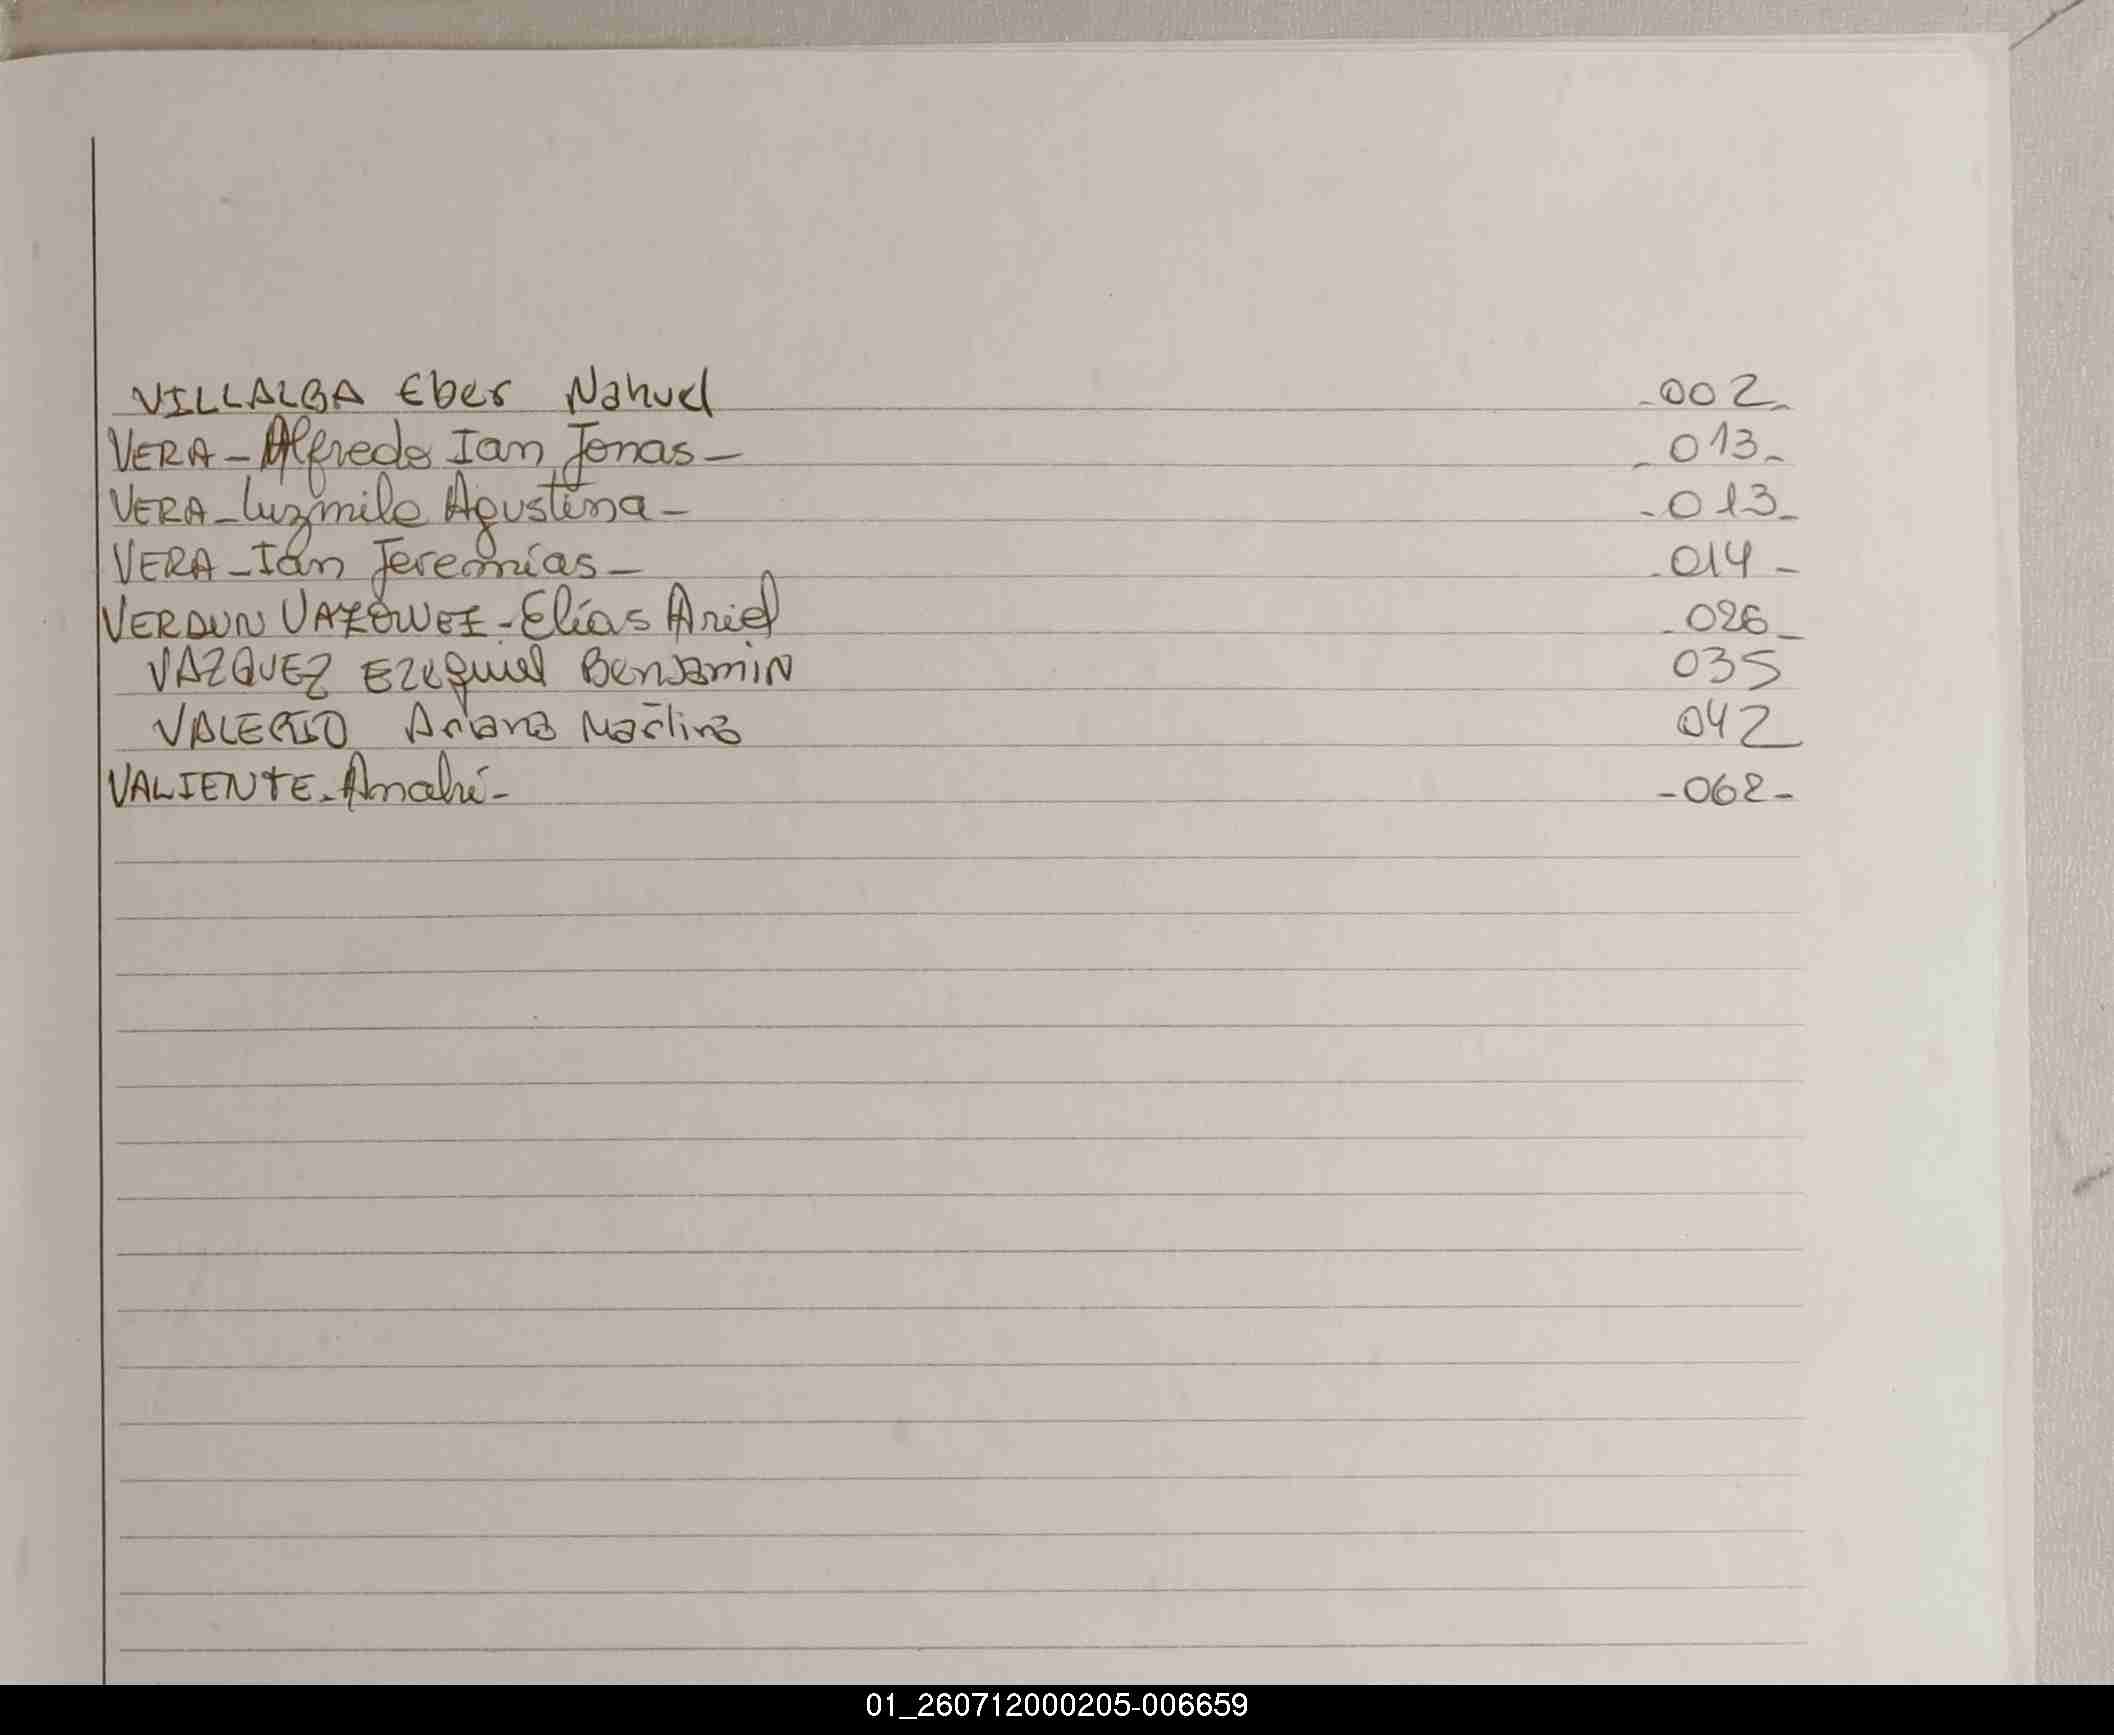 VILLALBA Eber Nahuel -002-
VERA - Alfredo Ian Jonas - - 013 -
VERA - Luzmila Agustina - - 013 -
VERA - Ian Jeremías - - 014 -
VERDUN VAZQUEZ - Elías Ariel - 026 -
VAZQUEZ Ezequiel Benjamin 035
VALERIO Ariana Martina 042
VALIENTE - Amahí - - 062 -
01_260712000205-006659